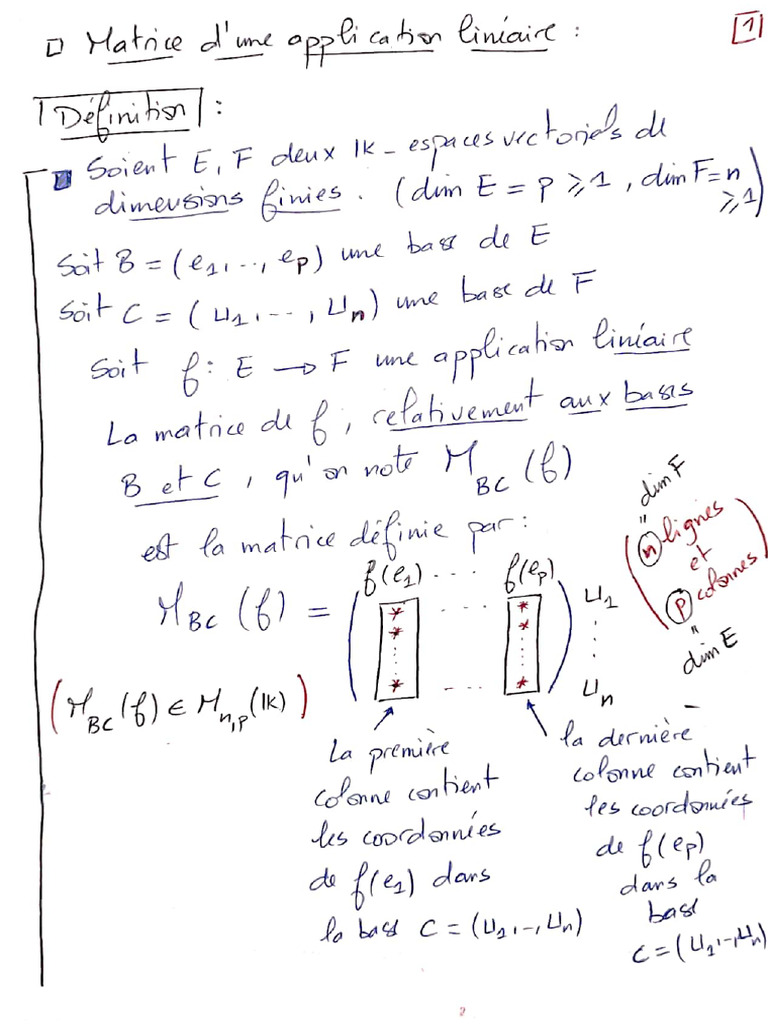 □ Matrice d'une application linéaire :
1
Définition :
Soient E, F deux lk - espaces vectoriels de
dimensions finies. (dim E = p ⩾ 1, dim F = n ⩾ 1)
Soit B = (e₁, .., eₚ) une base de E
Soit C = (u₁, .., uₙ) une base de F
Soit f : E → F une application linéaire
La matrice de f, relativement aux bases
B et C, qu'on note M_BC (f)
est la matrice définie par :
(n lignes et p colonnes)
n = dim F
p = dim E
f(e₁) .... f(eₚ)
M_BC (f) = ( * .... * ) u₁
* *
⋮ ⋮ ⋮
* .... * uₙ
(M_BC (f) ∈ M_n,p (lk))
La première
colonne contient
les coordonnées
de f(e₁) dans
la base C = (u₁, .., uₙ)
la dernière
colonne contient
les coordonnées
de f(eₚ)
dans la
base
C = (u₁, .., uₙ)
2